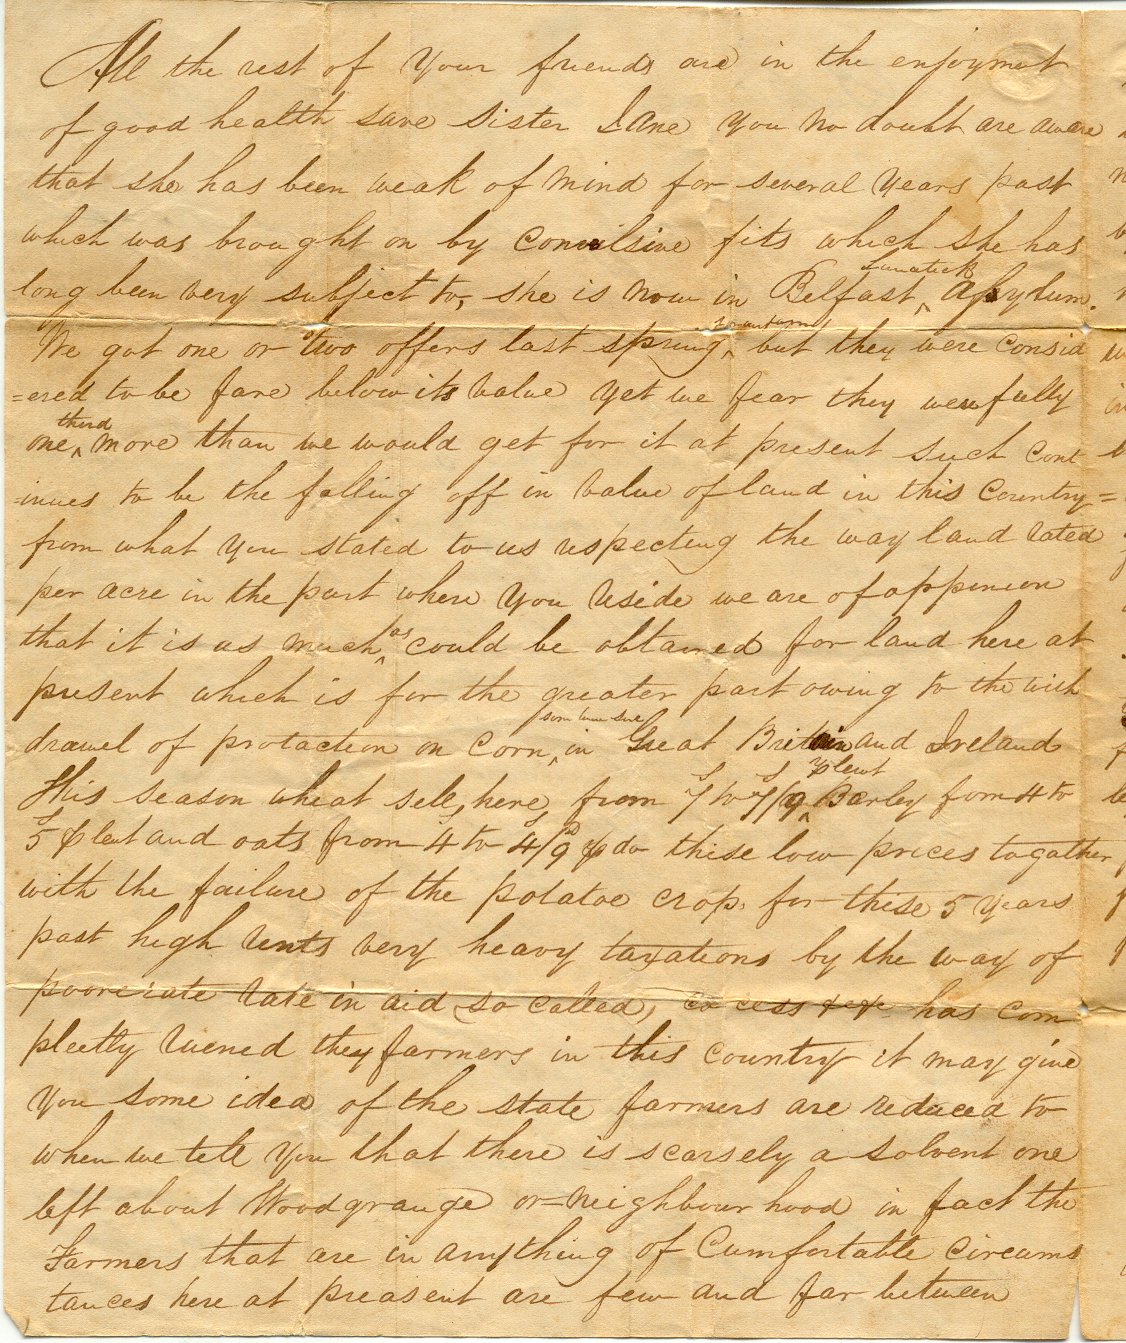 All the rest of your friends are in the enjoyment
of good health save Sister Jane you no doubt are aware
that she has been weak of mind for several years past
which was brought on by convulsive fits which she has
long been very subject to, she is now in Belfast ^ Lunatick Asylum.
We got one or two offers last spring ^ but they were consid
=ered to be fare below its value yet we fear they were fully
one ^ third more than we would get for it at present such cont
=inues to be the falling off in value of land in this Country =
from what you stated to us respecting the way land rated
per acre in the part where you reside we are of oppenion
that it is as much ^ as could be obtained for land here at
present which is for the greater part owing to the with
drawel of protaction on corn ^ some time since in Great Britain and Ireland
This season wheat sells here from 7s to 7s/9 ^ ℔ Cwt Barley from 4 to
5s ℔ Cwt and oats from 4 to 4s/9d ℔ do these low prices togather
with the failure of the potatoe crop for these 5 years
past high rents very heavy taxations by the way of
poorerate rate in aid (so called) co cess &c &c has com
pleetly ruened they farmers in this country it may give
you some idea of the state farmers are reduced to
when we tell you that there is scarsely a solvent one
left about Woodgrange or neighbourhood in fact the
Farmers that are in anything of Cumfortable circums
tances here at preasent are few and far between